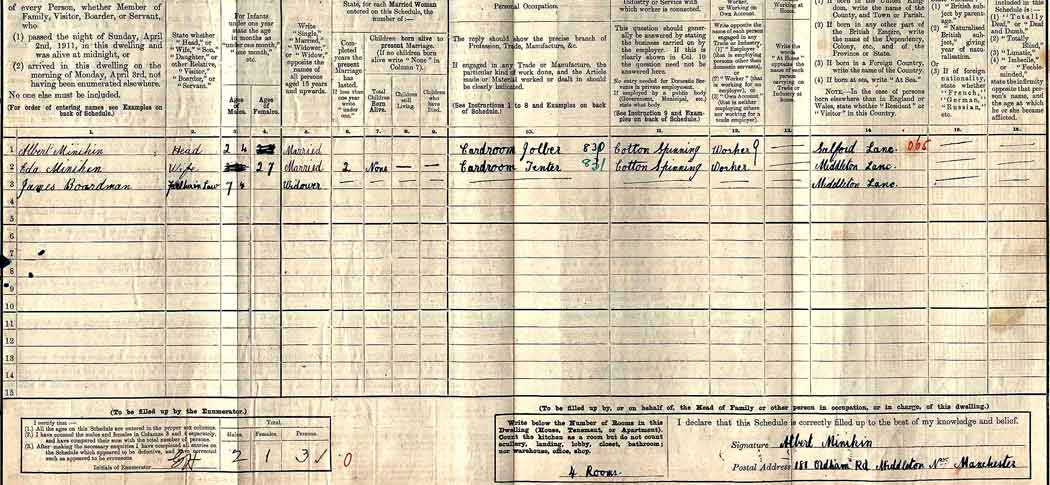 of every Person, whether Member of
Family, Visitor, Boarder, or Servant,
who
(1) passed the night of Sunday, April
2nd, 1911, in this dwelling and
was alive at midnight, or
(2) arrived in this dwelling on the
morning of Monday, April 3rd, not
having been enumerated elsewhere.
No one else must be included.
(For order of entering names see Examples on
back of Schedule.)
State whether
"Head," or
"Wife," "Son,"
"Daughter," or
other Relative,
"Visitor,"
"Boarder," or
"Servant."
For Infants
under one year
state the age
in months as
"under one month,"
"one month,"
etc.
Ages
of
Males.
Ages
of
Females.
Write
"Single,"
"Married,"
"Widower,"
or "Widow,"
opposite the
names of
all persons
aged 15 years
and upwards.
State, for each Married Woman
entered on this Schedule, the
number of:-
Completed
years the
present
Marriage
has
lasted.
If less than
one year
write
"under
one."
Children born alive to
present Marriage.
(If no children born
alive write "None" in
Column 7).
Total
Children
Born
Alive.
Children
still
Living.
Children
who
have
Died.
Personal Occupation.
The reply should show the precise branch of
Profession, Trade, Manufacture, &c.
If engaged in any Trade or Manufacture, the
particular kind of work done, and the Article
made or Material worked or dealt in should
be clearly indicated.
(See Instructions 1 to 8 and Examples on back
of Schedule.)
Industry or Service with
which worker is connected.
This question should generally
be answered by stating
the business carried on by
the employer. If this is
clearly shown in Col. 10
the question need not be
answered here.
No entry needed for Domestic Servants
in private employment.
If employed by a public body
(Government, Municipal, etc.)
state what body.
(See Instruction 9 and Examples
on back of Schedule.)
Worker, or
Working on
Own Account.
Write opposite the
name of each person
engaged in any
Trade or Industry,
(1) "Employer"
(that is employing
persons other than
domestic servants),
or (2) "Worker" (that
is working for an
employer), or
(3) "Own Account"
(that is neither
employing others
nor working for a
trade employer).
Working at
Home.
Write the
words
"At Home"
opposite the
name of
each person
carrying on
Trade or
Industry at
home.
(1) If born in the United Kingdom,
write the name of the
County, and Town or Parish.
(2) If born in any other part of
the British Empire, write
the name of the Dependency,
Colony, etc., and of the
Province or State.
(3) If born in a Foreign Country,
write the name of the Country.
(4) If born at sea, write "At Sea."
NOTE.-In the case of persons
born elsewhere than in England or
Wales, state whether "Resident" or
"Visitor" in this Country.
(1) "British
subject by
parentage."
(2) "Naturalised
British
subject,"
giving
year of
naturalisation.
(3) If of foreign
nationality,
state whether
"French,"
"German,"
"Russian,"
etc.
included in this
Schedule is:-
(1) "Totally
Deaf," or "Deaf
and Dumb,"
(2) "Totally
Blind,"
(3) "Lunatic,"
(4) "Imbecile,"
or "Feeble-minded,"
state the infirmity
opposite that person's
name, and the
age at which he
or she became
afflicted.
1. 2. 3. 4. 5. 6. 7. 8. 9. 10. 11. 12. 13. 14. 15. 16.
1 Albert Minikin Head 24 Married Cardroom Jobber 830 Cotton Spinning Worker Salford Lanc. 066
2 Eda Minikin Wife 27 Married 2 None Cardroom Tenter 831 Cotton Spinning Worker Middleton Lanc.
3 James Boardman Father in Law 74 Widower Middleton Lanc.
4
5
6
7
8
9
10
11
12
13
14
15
(To be filled up by the Enumerator.)
I certify that:-
(1.) All the ages on this Schedule are entered in the proper sex columns.
(2.) I have counted the males and females in Columns 3 and 4 separately,
and have compared their sum with the total number of persons.
(3.) After making the necessary enquiries I have completed all entries on
the Schedule which appeared to be defective, and have corrected
such as appeared to be erroneous.
Initials of Enumerator
Males. Females. Total.
2 1 3
0
(To be filled up by, or on behalf of, the Head of Family or other person in occupation, or in charge, of this dwelling.)
Write below the Number of Rooms in this
Dwelling (House, Tenement, or Apartment).
Count the kitchen as a room but do not count
scullery, landing, lobby, closet, bathroom;
nor warehouse, office, shop.
4 Rooms
I declare that this Schedule is correctly filled up to the best of my knowledge and belief.
Signature Albert Minikin
Postal Address 188 Oldham Rd Middleton Nr Manchester